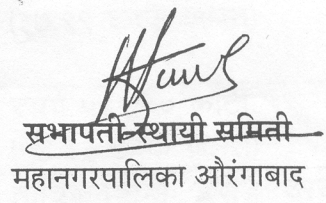 सभापती-स्थायी समिती
महानगरपालिका औरंगाबाद